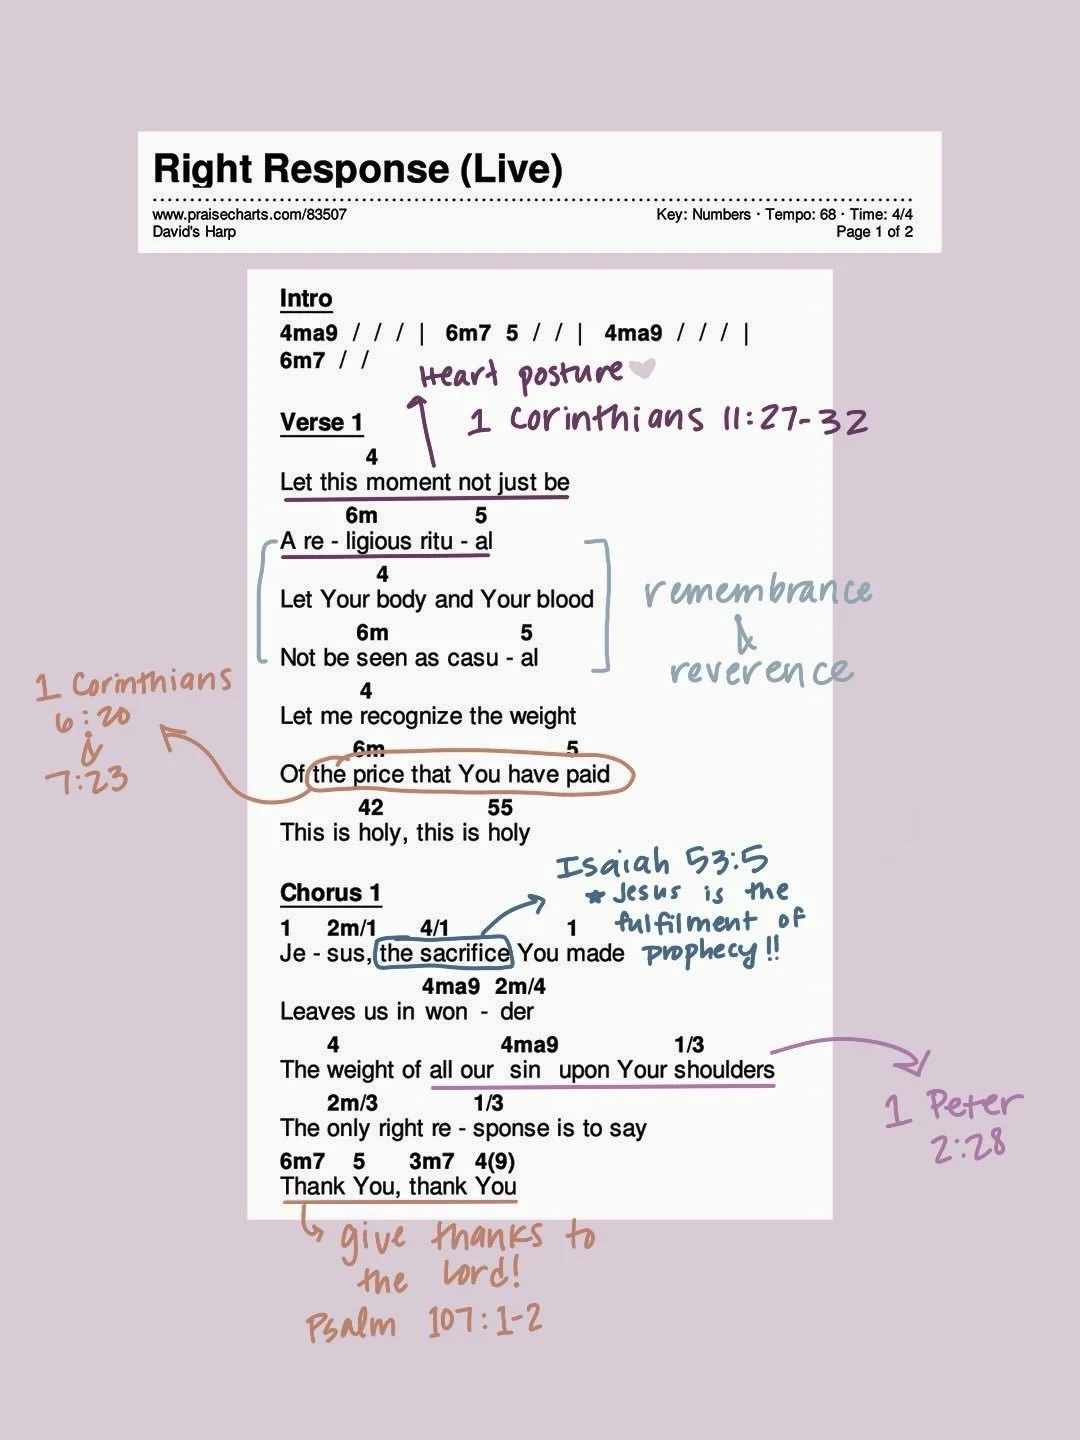 Right Response (Live)
www.praisecharts.com/83507
Key: Numbers · Tempo: 68 · Time: 4/4
David's Harp
Page 1 of 2
Intro
4ma9 / / / | 6m7 5 / / | 4ma9 / / / |
6m7 / /
Heart posture
1 Corinthians 11:27-32
Verse 1
4
Let this moment not just be
6m 5
A re - ligious ritu - al
4
Let Your body and Your blood
6m 5
Not be seen as casu - al
remembrance
&
reverence
4
Let me recognize the weight
6m 5
Of the price that You have paid
1 Corinthians
6:20
&
7:23
42 55
This is holy, this is holy
Chorus 1
1 2m/1 4/1 1
Je - sus, the sacrifice You made
Isaiah 53:5
* Jesus is the
fulfilment of
prophecy!!
4ma9 2m/4
Leaves us in won - der
4 4ma9 1/3
The weight of all our sin upon Your shoulders
1 Peter
2:28
2m/3 1/3
The only right re - sponse is to say
6m7 5 3m7 4(9)
Thank You, thank You
give thanks to
the Lord!
Psalm 107:1-2